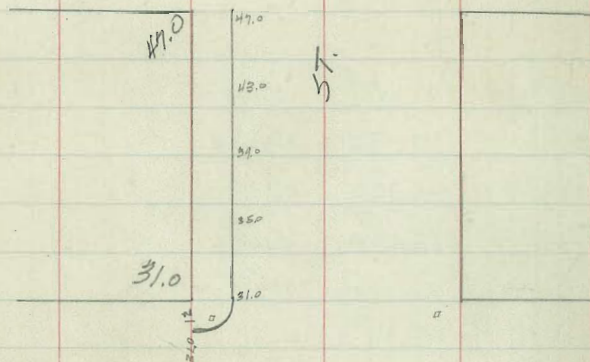 47.0
47.0
ST.
43.0
39.0
35.0
31.0
31.0
12
31.0